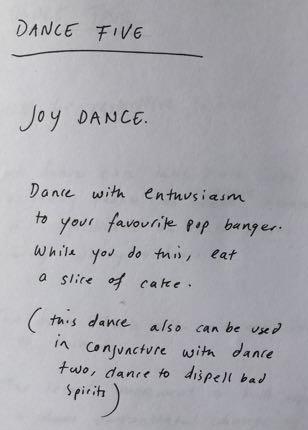 DANCE FIVE
JOY DANCE.
Dance with enthusiasm
to your favourite pop banger.
While you do this, eat
a slice of cake.
(this dance also can be used
in conjuncture with dance
two, dance to dispell bad
spirits)